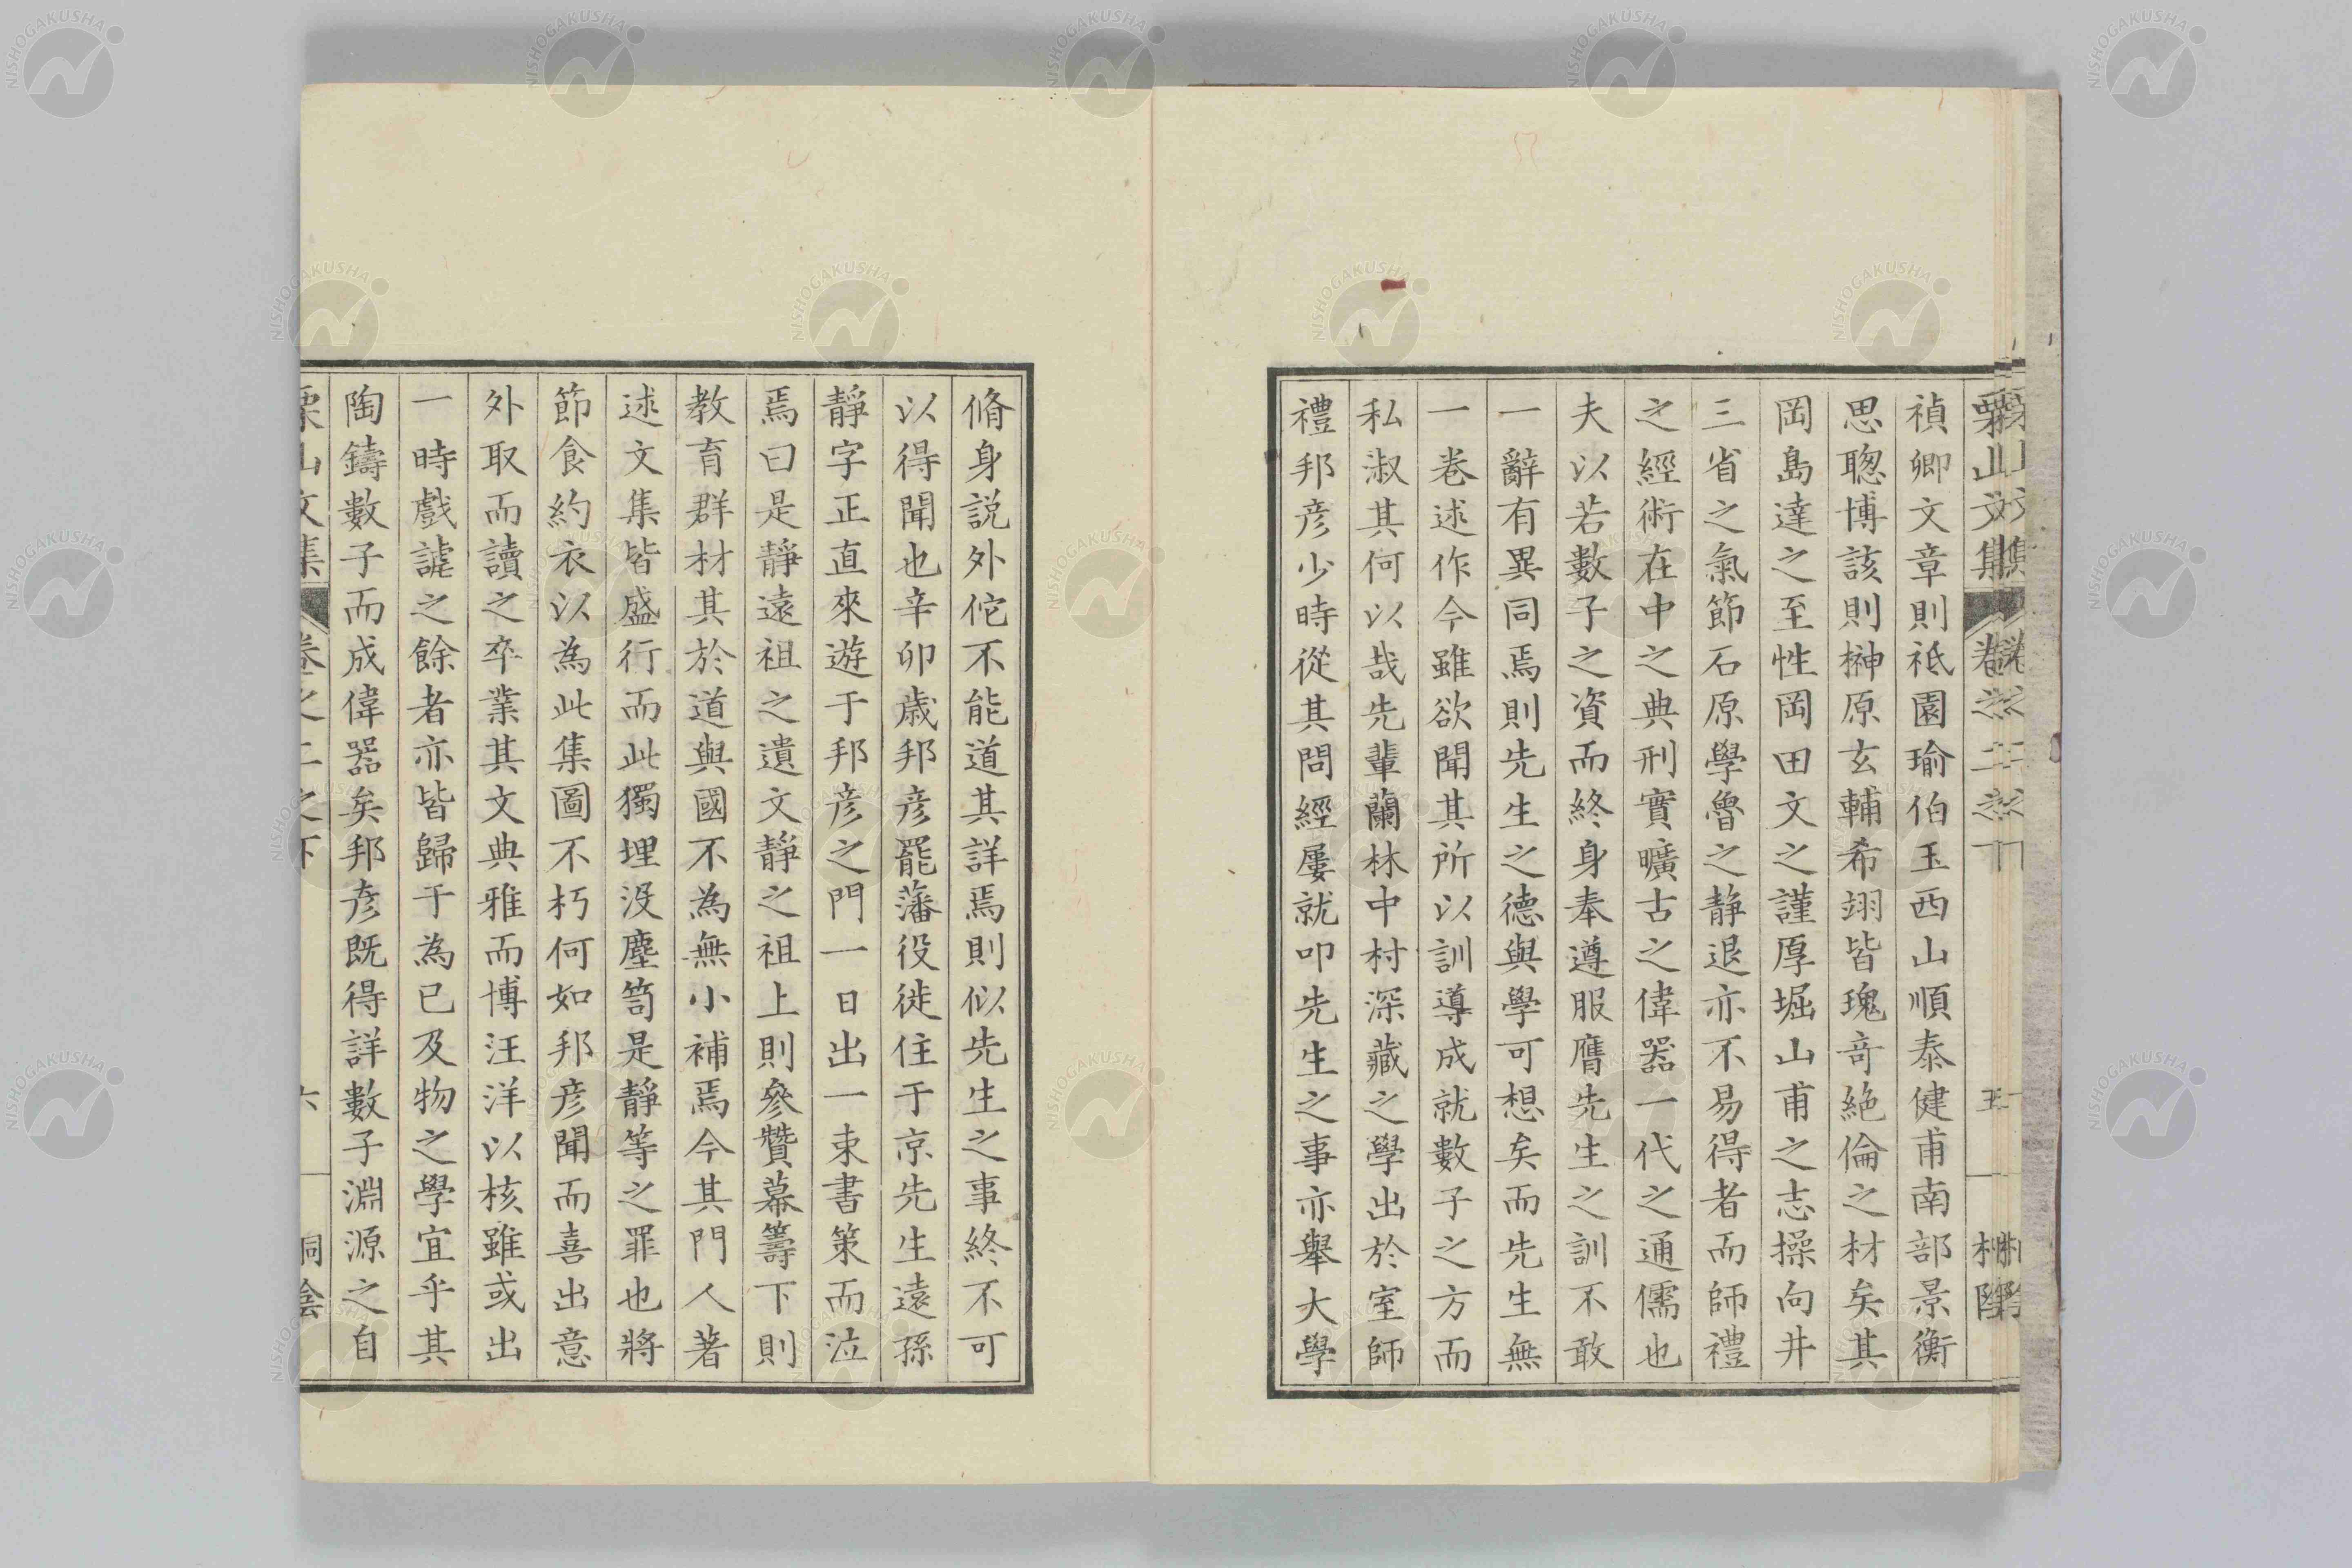 禎卿文章則祗園瑜伯玉西山順泰健甫南部景衡
思聰博該則榊原玄輔希翊皆瑰竒絶倫之材矣其
岡島達之至性岡田文之謹厚堀山甫之志操向井
三省之氣節石原學魯之静退亦不易得者而師禮
之經術在中之典刑實曠古之偉器一代之通儒也
夫以若數子之資而終身奉遵服膺先生之訓不敢
一辭有異同焉則先生之德與學可想矣而先生無
一卷述作今雖欲聞其所以訓導成就數子之方而
私淑其何以哉先輩蘭林中村深藏之學出於室師
禮邦彦少時從其問經屢就叩先生之事亦舉大學
脩身説外佗不能道其詳焉則似先生之事終不可
以得聞也辛卯歳邦彦罷藩役徙住于京先生遠孫
靜字正直來遊于邦彦之門一日出一束書策而泣
焉曰是靜遠祖之遺文靜之祖上則參贊幕籌下則
教育群材其於道與國不為無小補焉今其門人著
述文集皆盛行而此獨埋没塵笥是靜等之罪也將
節食約衣以為此集圖不朽何如邦彦聞而喜出意
外取而讀之卒業其文典雅而博汪洋以核雖或出
一時戲謔之餘者亦皆歸于為已及物之學宜乎其
陶鑄數子而成偉器矣邦彦既得詳數子淵源之自
栗山文集 卷之二之下 六 桐陰
栗山文集 卷之二之下 五 桐陰
NISHOGAKUSHA